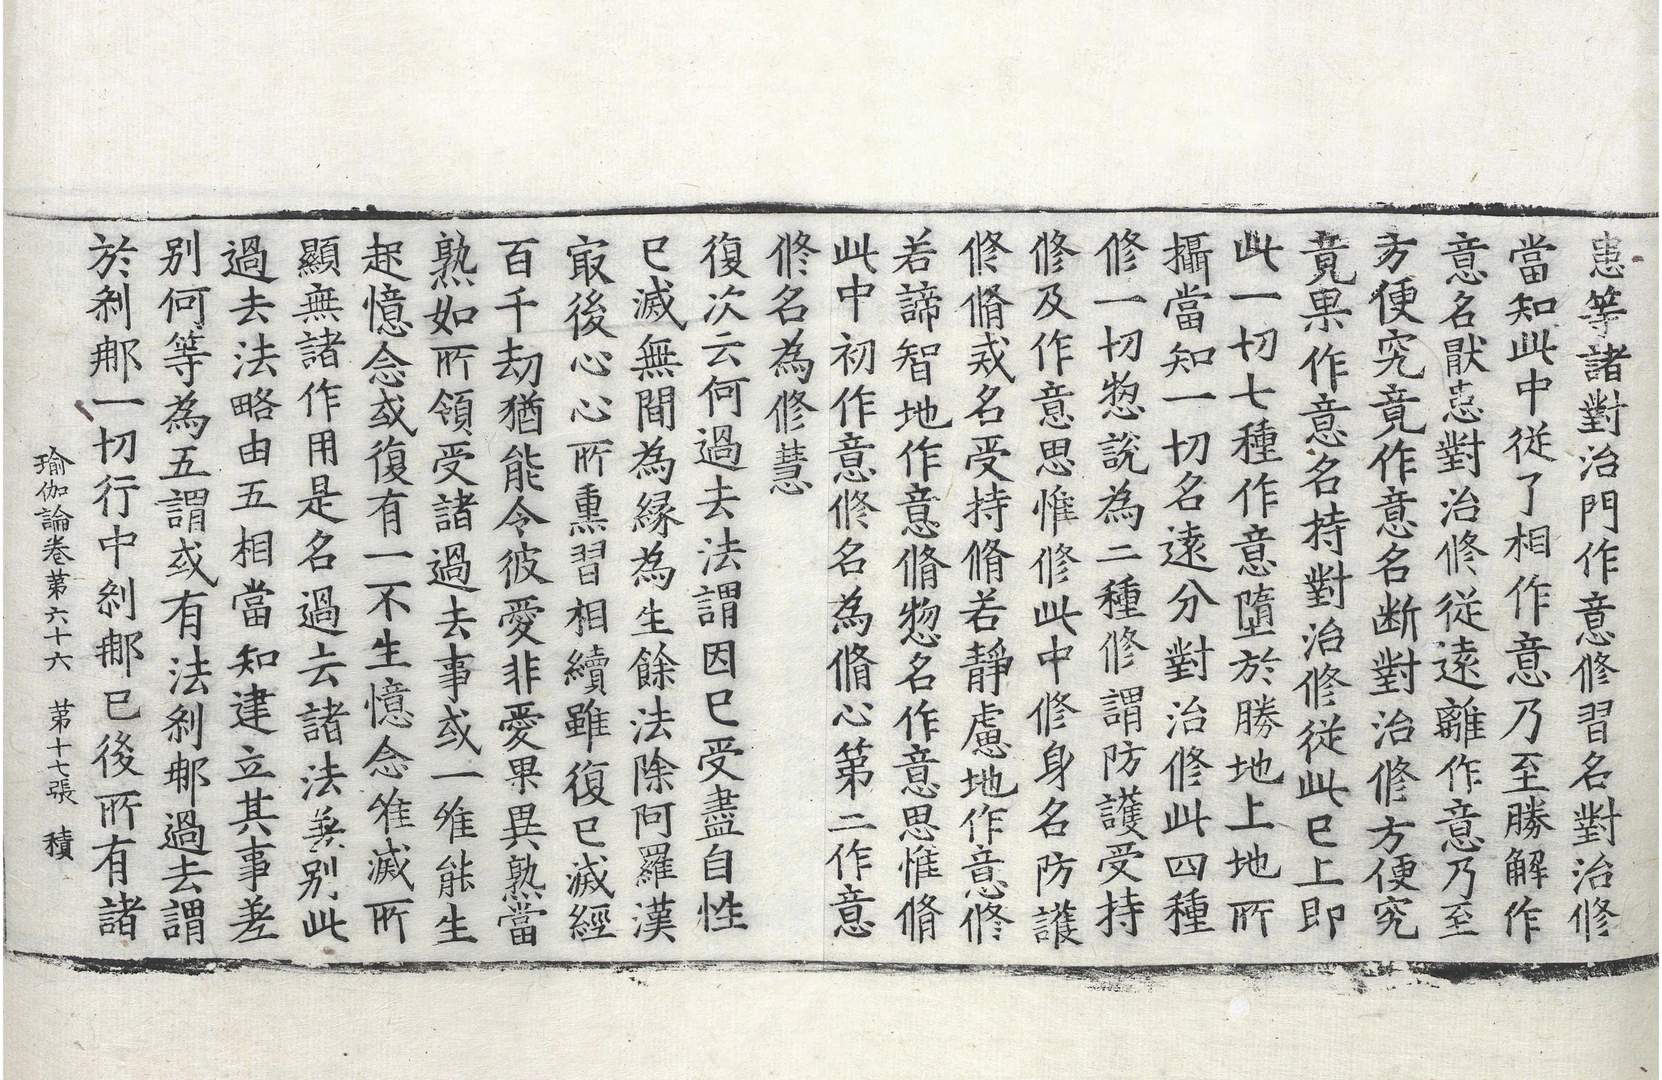 恚等諸對治門作意修習名對治修
當知此中從了相作意乃至勝解作
意名猒恚對治修從遠離作意乃至
方便究竟作意名断對治修方便究
竟果作意名持對治修從此已上即
此一切七種作意墮於勝地上地所
攝當知一切名遠分對治修此四種
修一切惣說為二種修謂防護受持
修及作意思惟修此中修身名防護
修脩戒名受持脩若靜慮地作意修
若諦智地作意脩惣名作意思惟脩
此中初作意修名為脩心第二作意
修名為修慧
復次云何過去法謂因已受盡自性
已滅無間為縁為生餘法除阿羅漢
㝡後心心所熏習相續雖復已滅經
百千劫猶能令彼愛非愛果異熟當
熟如所領受諸過去事或一唯能生
起憶念或復有一不生憶念唯滅所
顯無諸作用是名過去諸法羌別此
過去法略由五相當知建立其事差
别何等為五謂或有法刹那過去謂
於刹那一切行中刹那已後所有諸
瑜伽論卷第六十六　第十七張　積